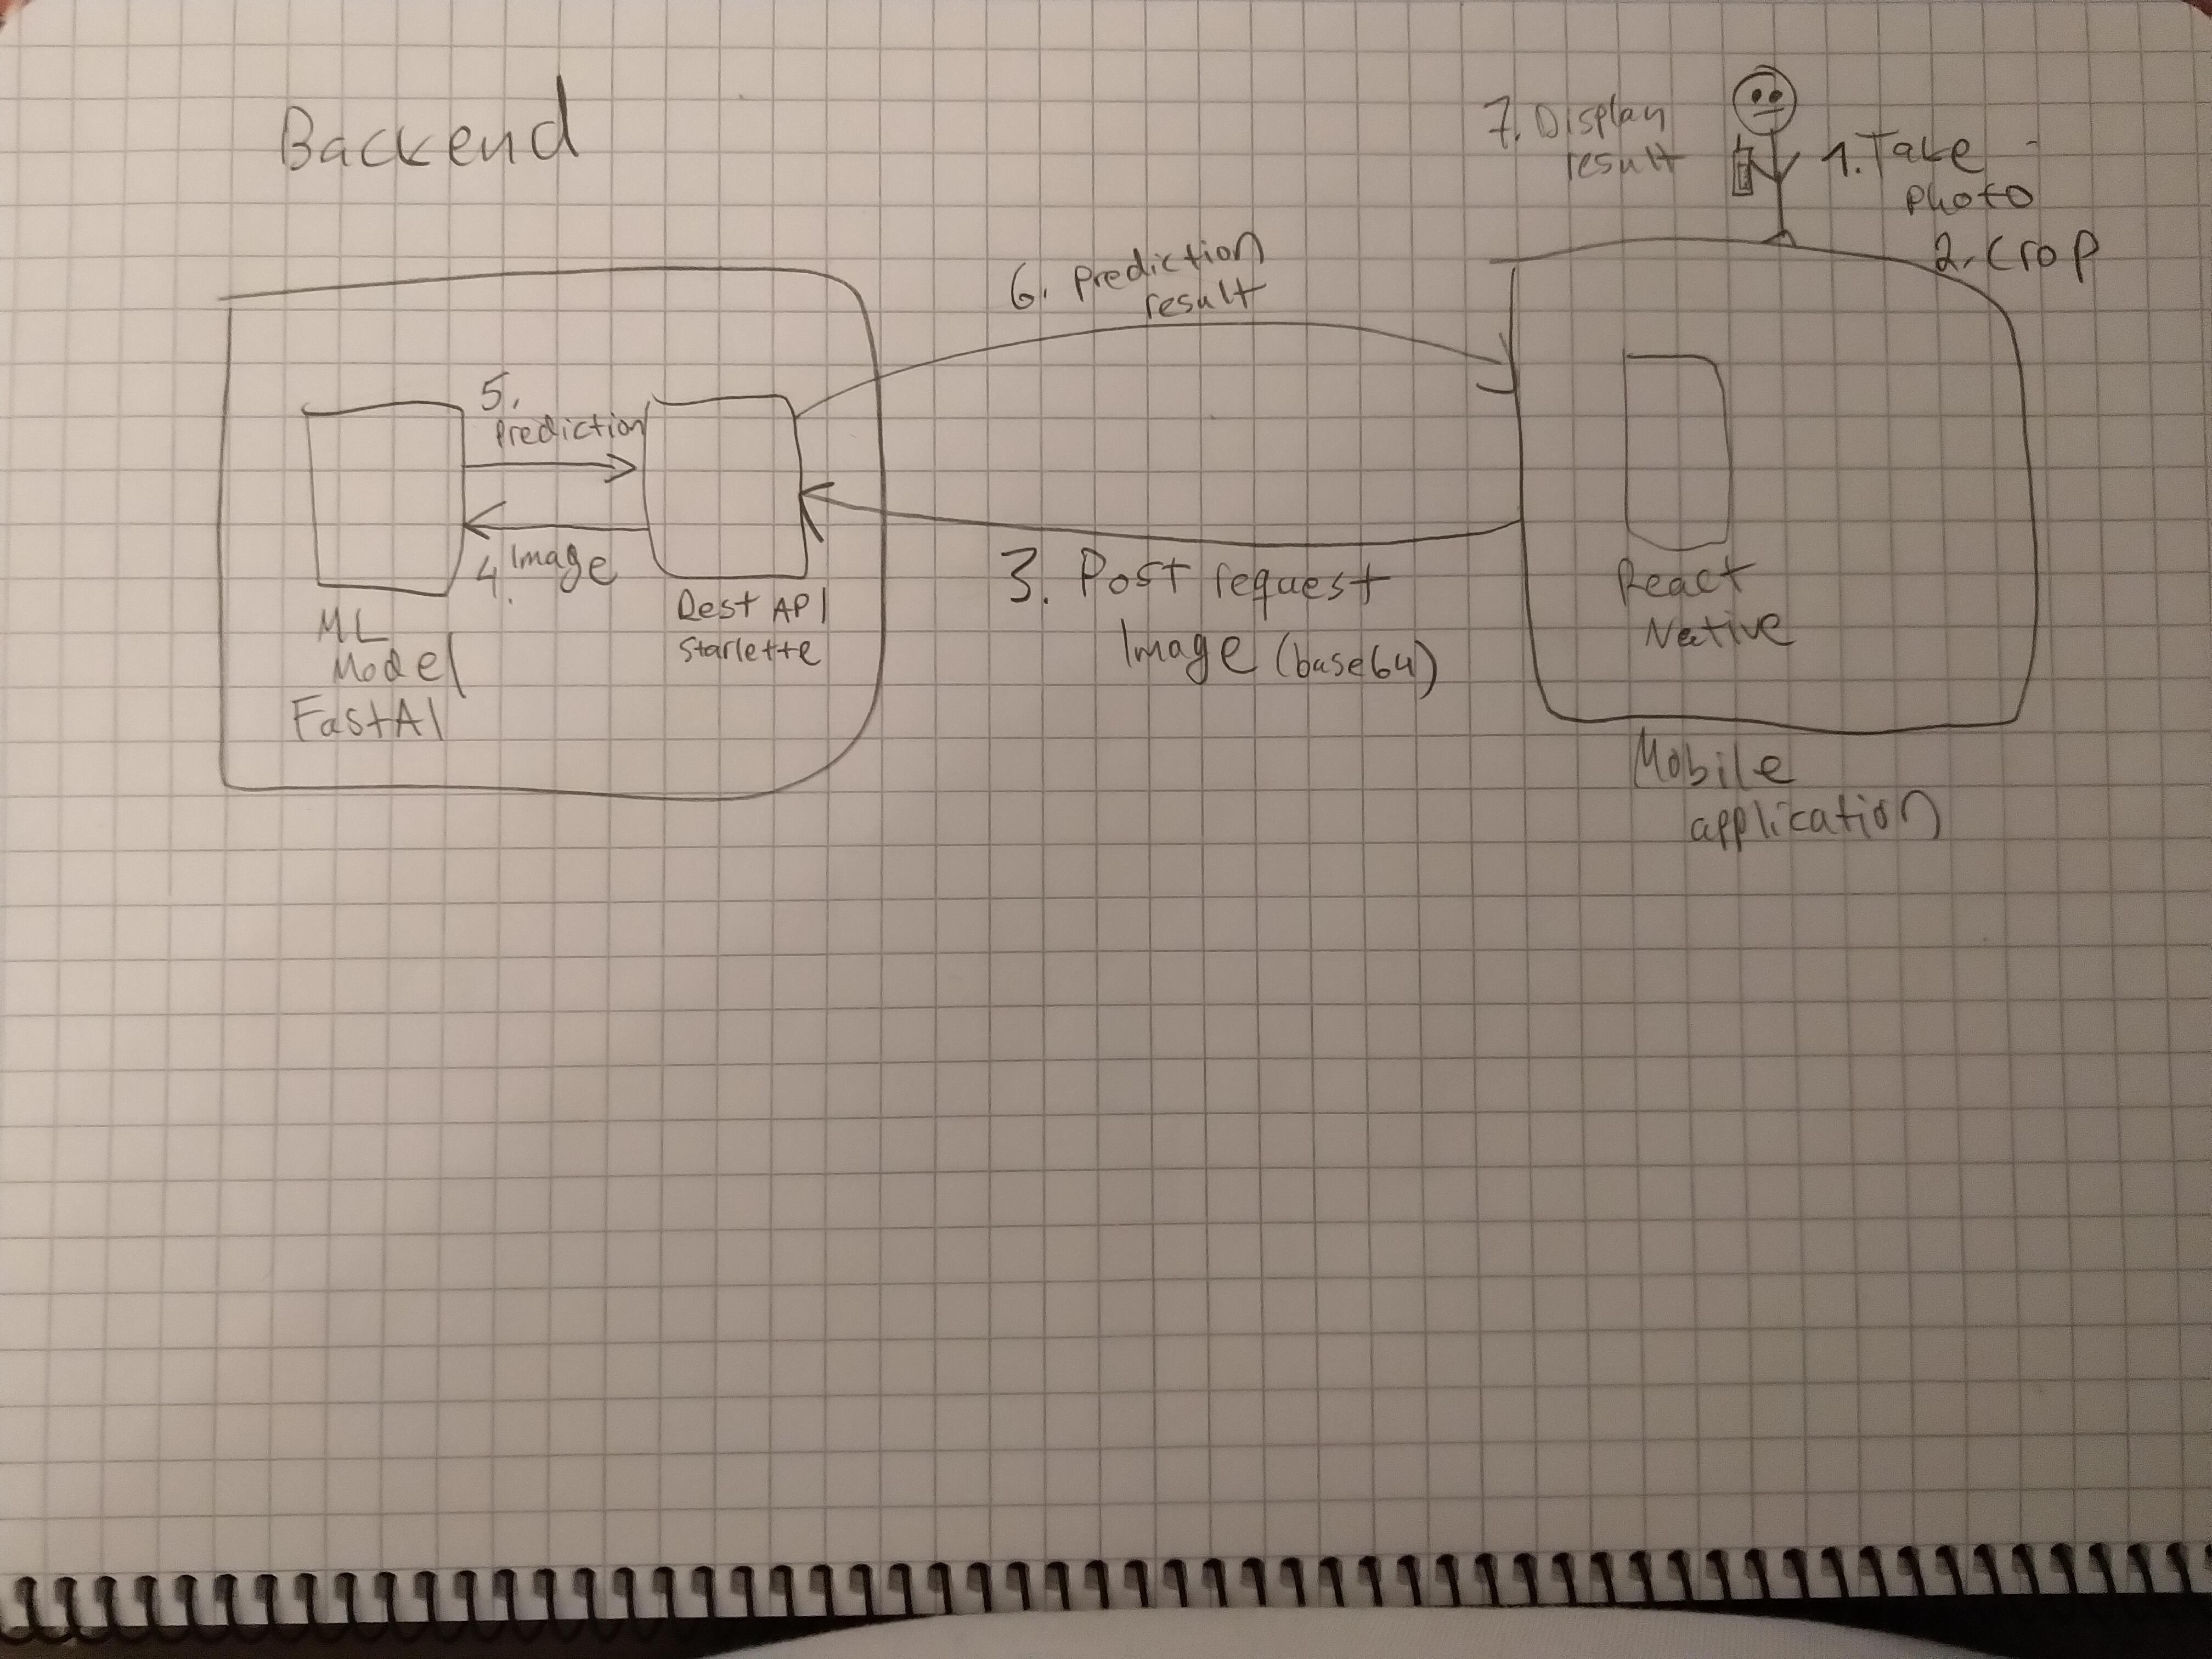 Backend
5. Prediction
4. Image
ML
Model
FastAI
Rest API
Starlette
6. prediction
result
3. Post request
Image (base64)
7. Display
result
1. Take
photo
2. Crop
React
Native
Mobile
application